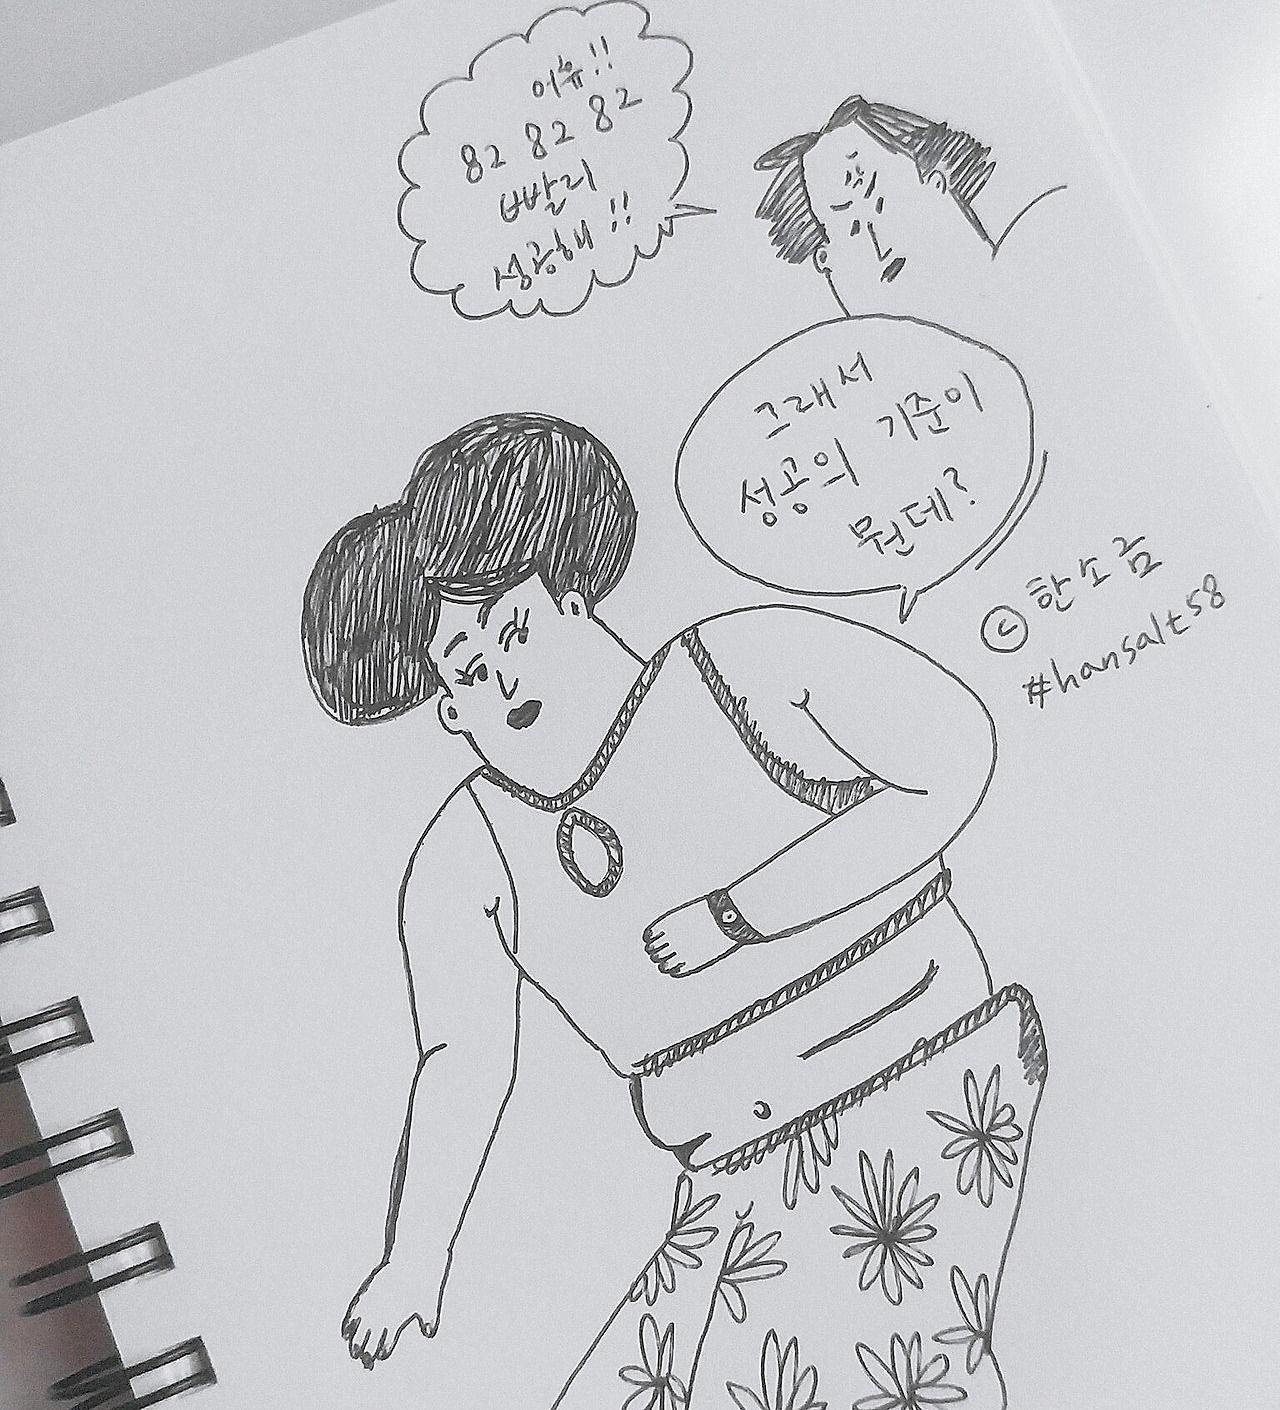 어휴!!
82 82 82
빨리
성공해!!
그래서
성공의 기준이
뭔데?
© 한소금
#hansalt58